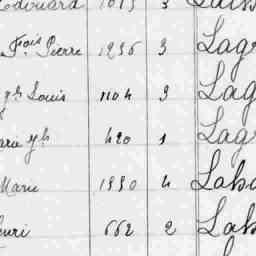 Edouard 1015 3
Fois Pierre 1236 3 Lagr
gh Louis 1104 3 Lag
arie Jh 420 1 Lagr
Marie 1330 4 Laba
enri 662 2 Lab